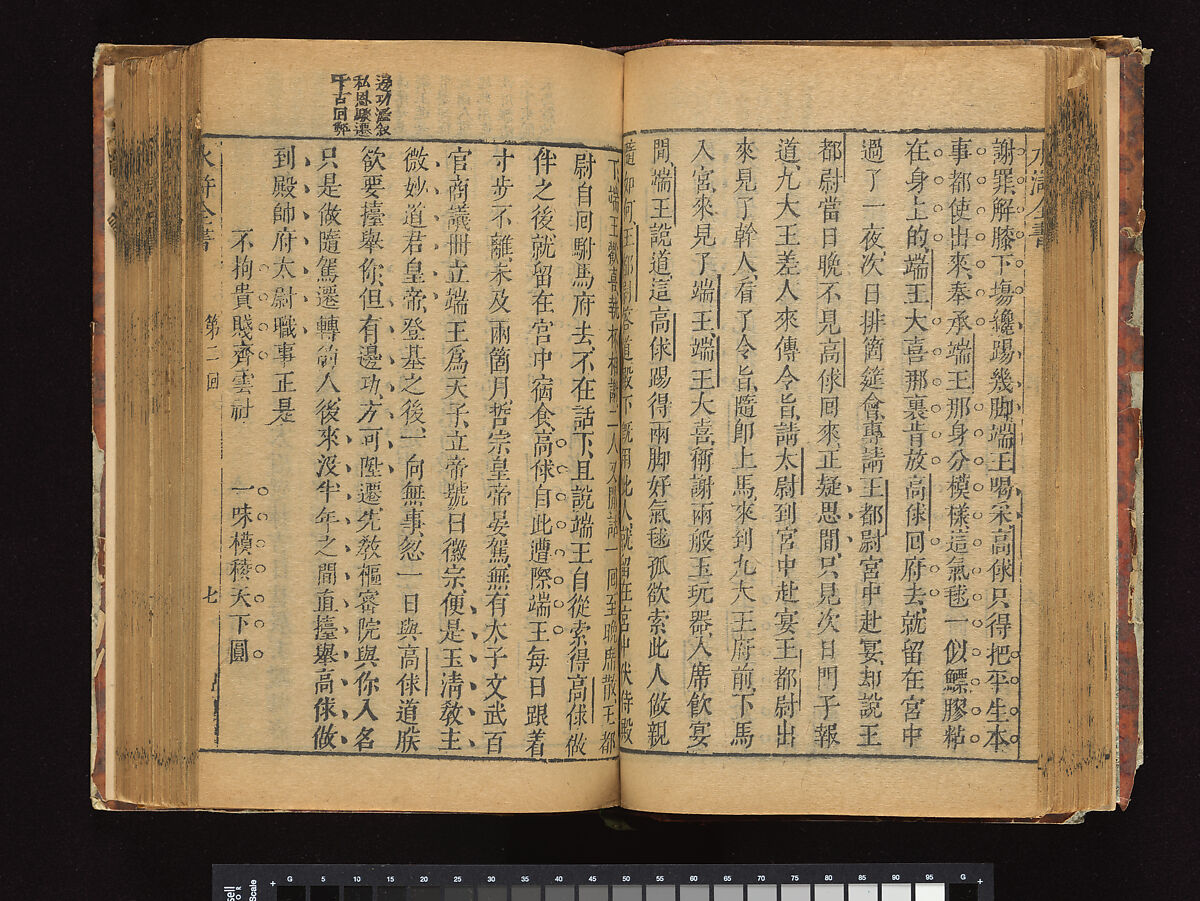 水滸全書
謝罪解膝下塲纔踢幾脚端王喝采高俅只得把平生本
事都使出來奉承端王那身分模樣這氣毬一似鰾膠粘
在身上的端王大喜那裏肯放高俅回府去就留在宮中
過了一夜次日排箇筵會專請王都尉宮中赴宴却說王
都尉當日晚不見高俅回來正疑思間只見次日門子報
道九大王差人來傳令旨請太尉到宮中赴宴王都尉出
來見了幹人看了令旨隨卽上馬來到九大王府前下馬
入宮來見了端王端王大喜稱謝兩般玉玩器入席飲宴
間端王說道這高俅踢得兩脚好氣毬孤欲索此人做親
隨如何王都尉答道殿下旣用此人就留在宮中伏侍殿
下端王歡喜執杯相謝二人又閒話一回至晚席散王都
尉自回駙馬府去不在話下且說端王自從索得高俅做
伴之後就留在宮中宿食高俅自此遭際端王每日跟着
寸步不離未及兩箇月哲宗皇帝晏駕無有太子文武百
官商議冊立端王爲天子立帝號曰徽宗便是玉清教主
微妙道君皇帝登基之後一向無事忽一日與高俅道朕
欲要擡舉你但有邊功方可陞遷先教樞密院與你入名
只是做隨駕遷轉的人後來沒半年之間直擡舉高俅做
到殿帥府太尉職事正是
不拘貴賤齊雲社 一味模稜天下圓
邊功濫叙
私恩驟遷
千古同弊
水滸全書 第二回 七